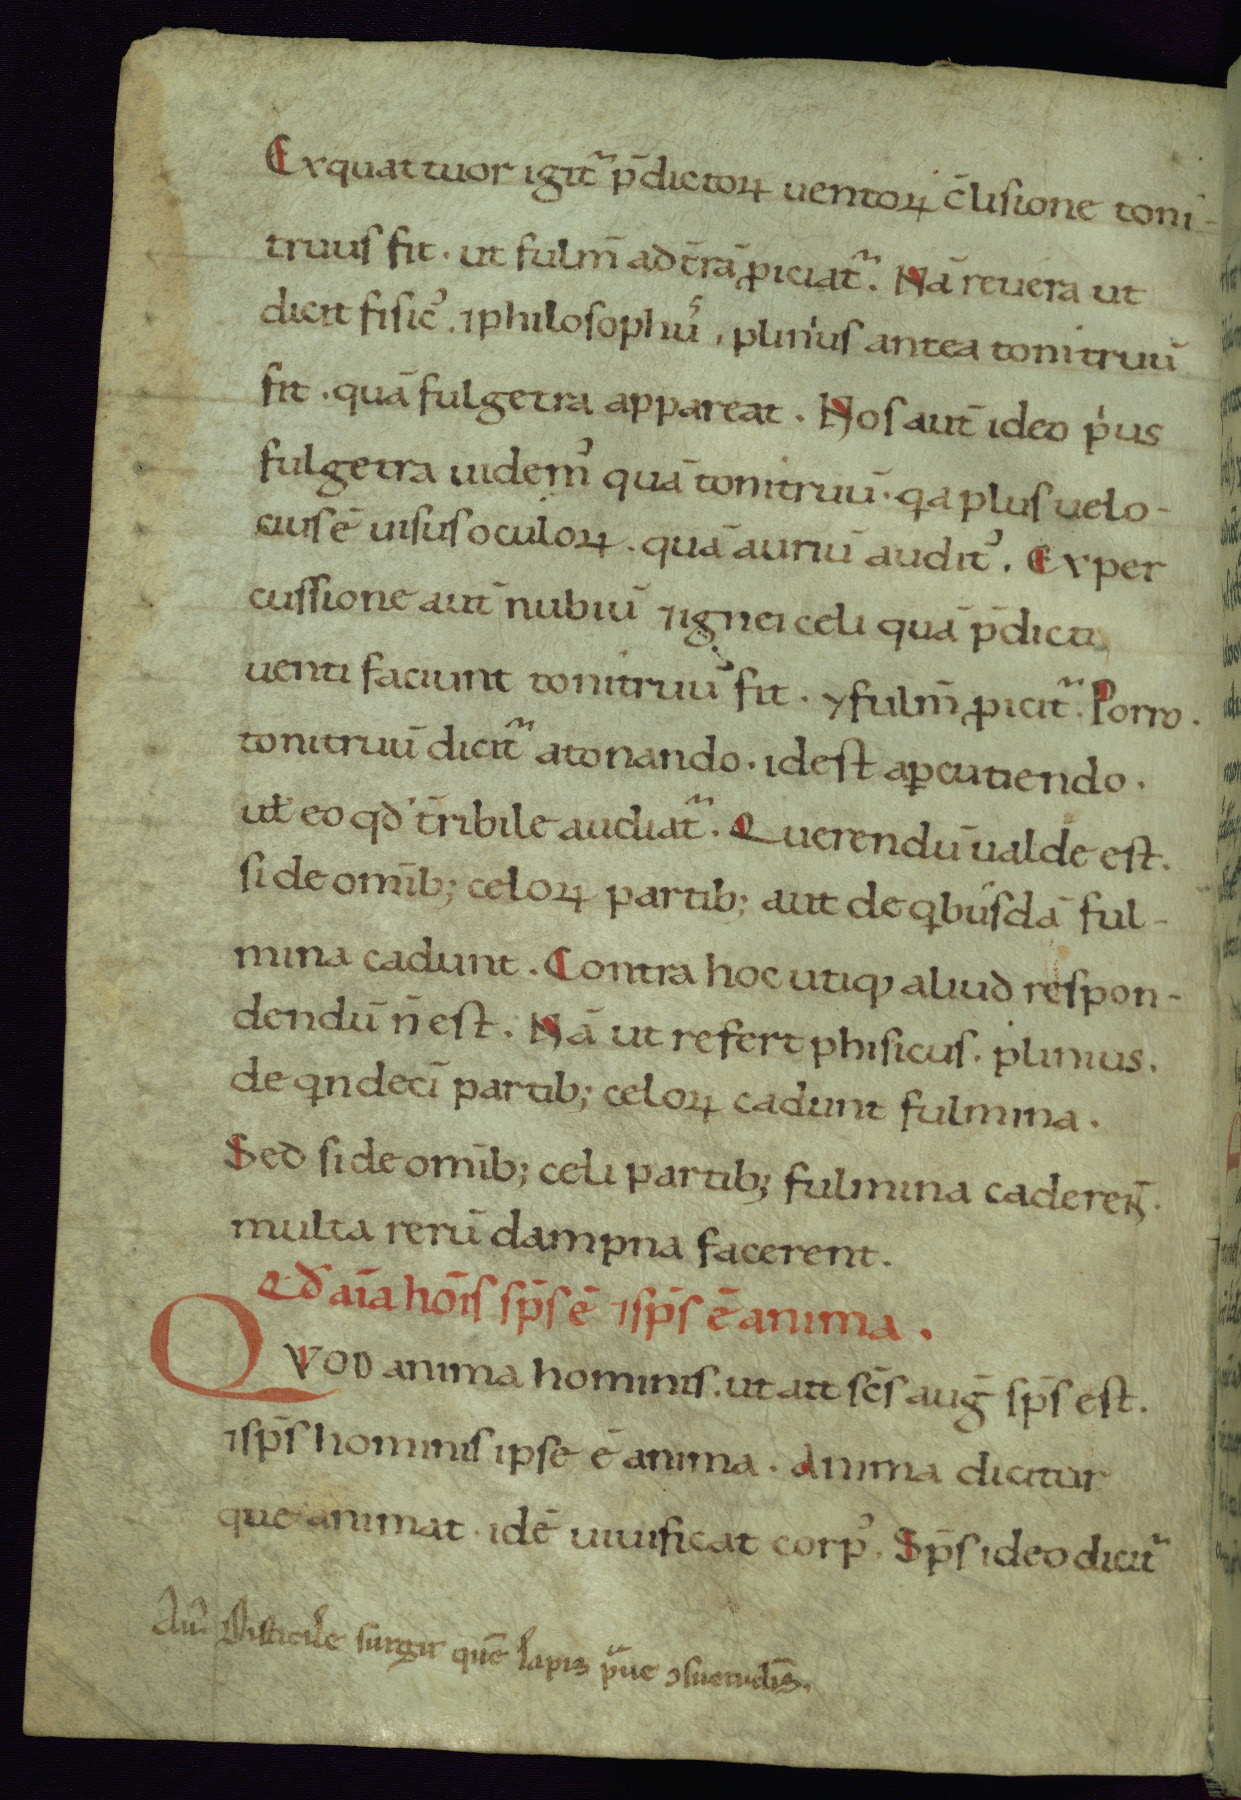 Ex quattuor igit᷑ p̄dictoꝝ uentoꝝ c̄lisione toni-
truus fit. ut fulm̄ ad t̄rā ꝓiciat᷑. Nā reuera ut
dicit fisicꝰ. ⁊ philosophus, plinius antea tonitruū
fit. quā fulgetra appareat. Nos aut̄ ideo p̍us
fulgetra uidemꝰ quā tonitruū. qa plus uelo-
cius ē uisus oculoꝝ. quā auriū auditꝰ. Ex per
cussione aut̄ nubiū ⁊ ignei celi quā p̄dicti
uenti faciunt tonitruū fit. ⁊ fulm̄ ꝓicit᷑. Porro.
tonitruū dicit᷑ a tonando. id est a ꝑcutiendo.
uł eo qđ t̄ribile audiat᷑. Querendū ualde est.
si de om̄ib; celoꝝ partib; aut de qbusdā ful-
mina cadunt. Contra hoc utiqꝫ aliud respon-
dendū n̄ est. Nā ut refert phisicus. plinius.
de qndecī partib; celoꝝ cadunt fulmina.
Sed si de om̄ib; celi partib; fulmina caderent̄.
multa rerū dampna facerent.
Qđ aīa hoīs sp̄s ē ⁊ sp̄s ē anima.
QVOD anima hominis. ut ait sc̄s auḡ sp̄s est.
⁊ sp̄s hominis ipse ē anima. Anima dicitur
que animat. idē uiuificat corpꝰ. Sp̄s ideo dicit᷑
Difficile surgit quē lapis p̄ue ɔsuetudīs.